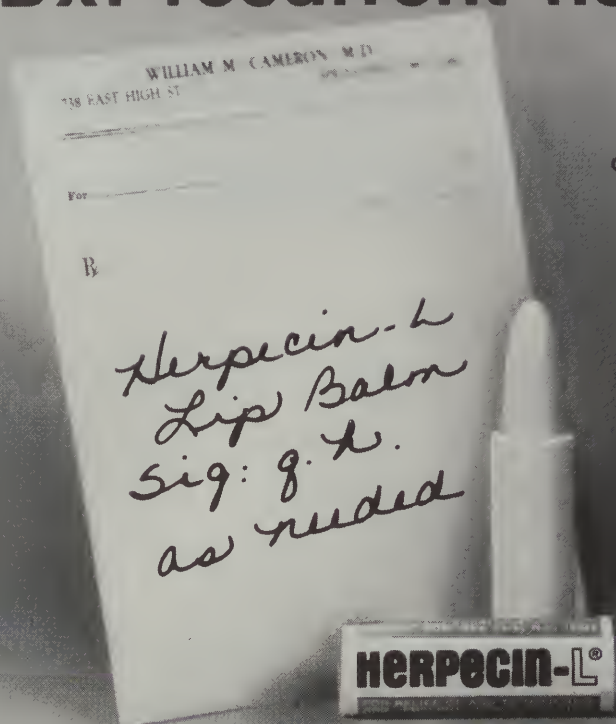 Dx: recurrent
WILLIAM M. CAMERON M.D.
738 EAST HIGH ST
For
℞
Herpecin-L
Lip Balm
Sig: q. h.
as needed
HERPECIN-L®